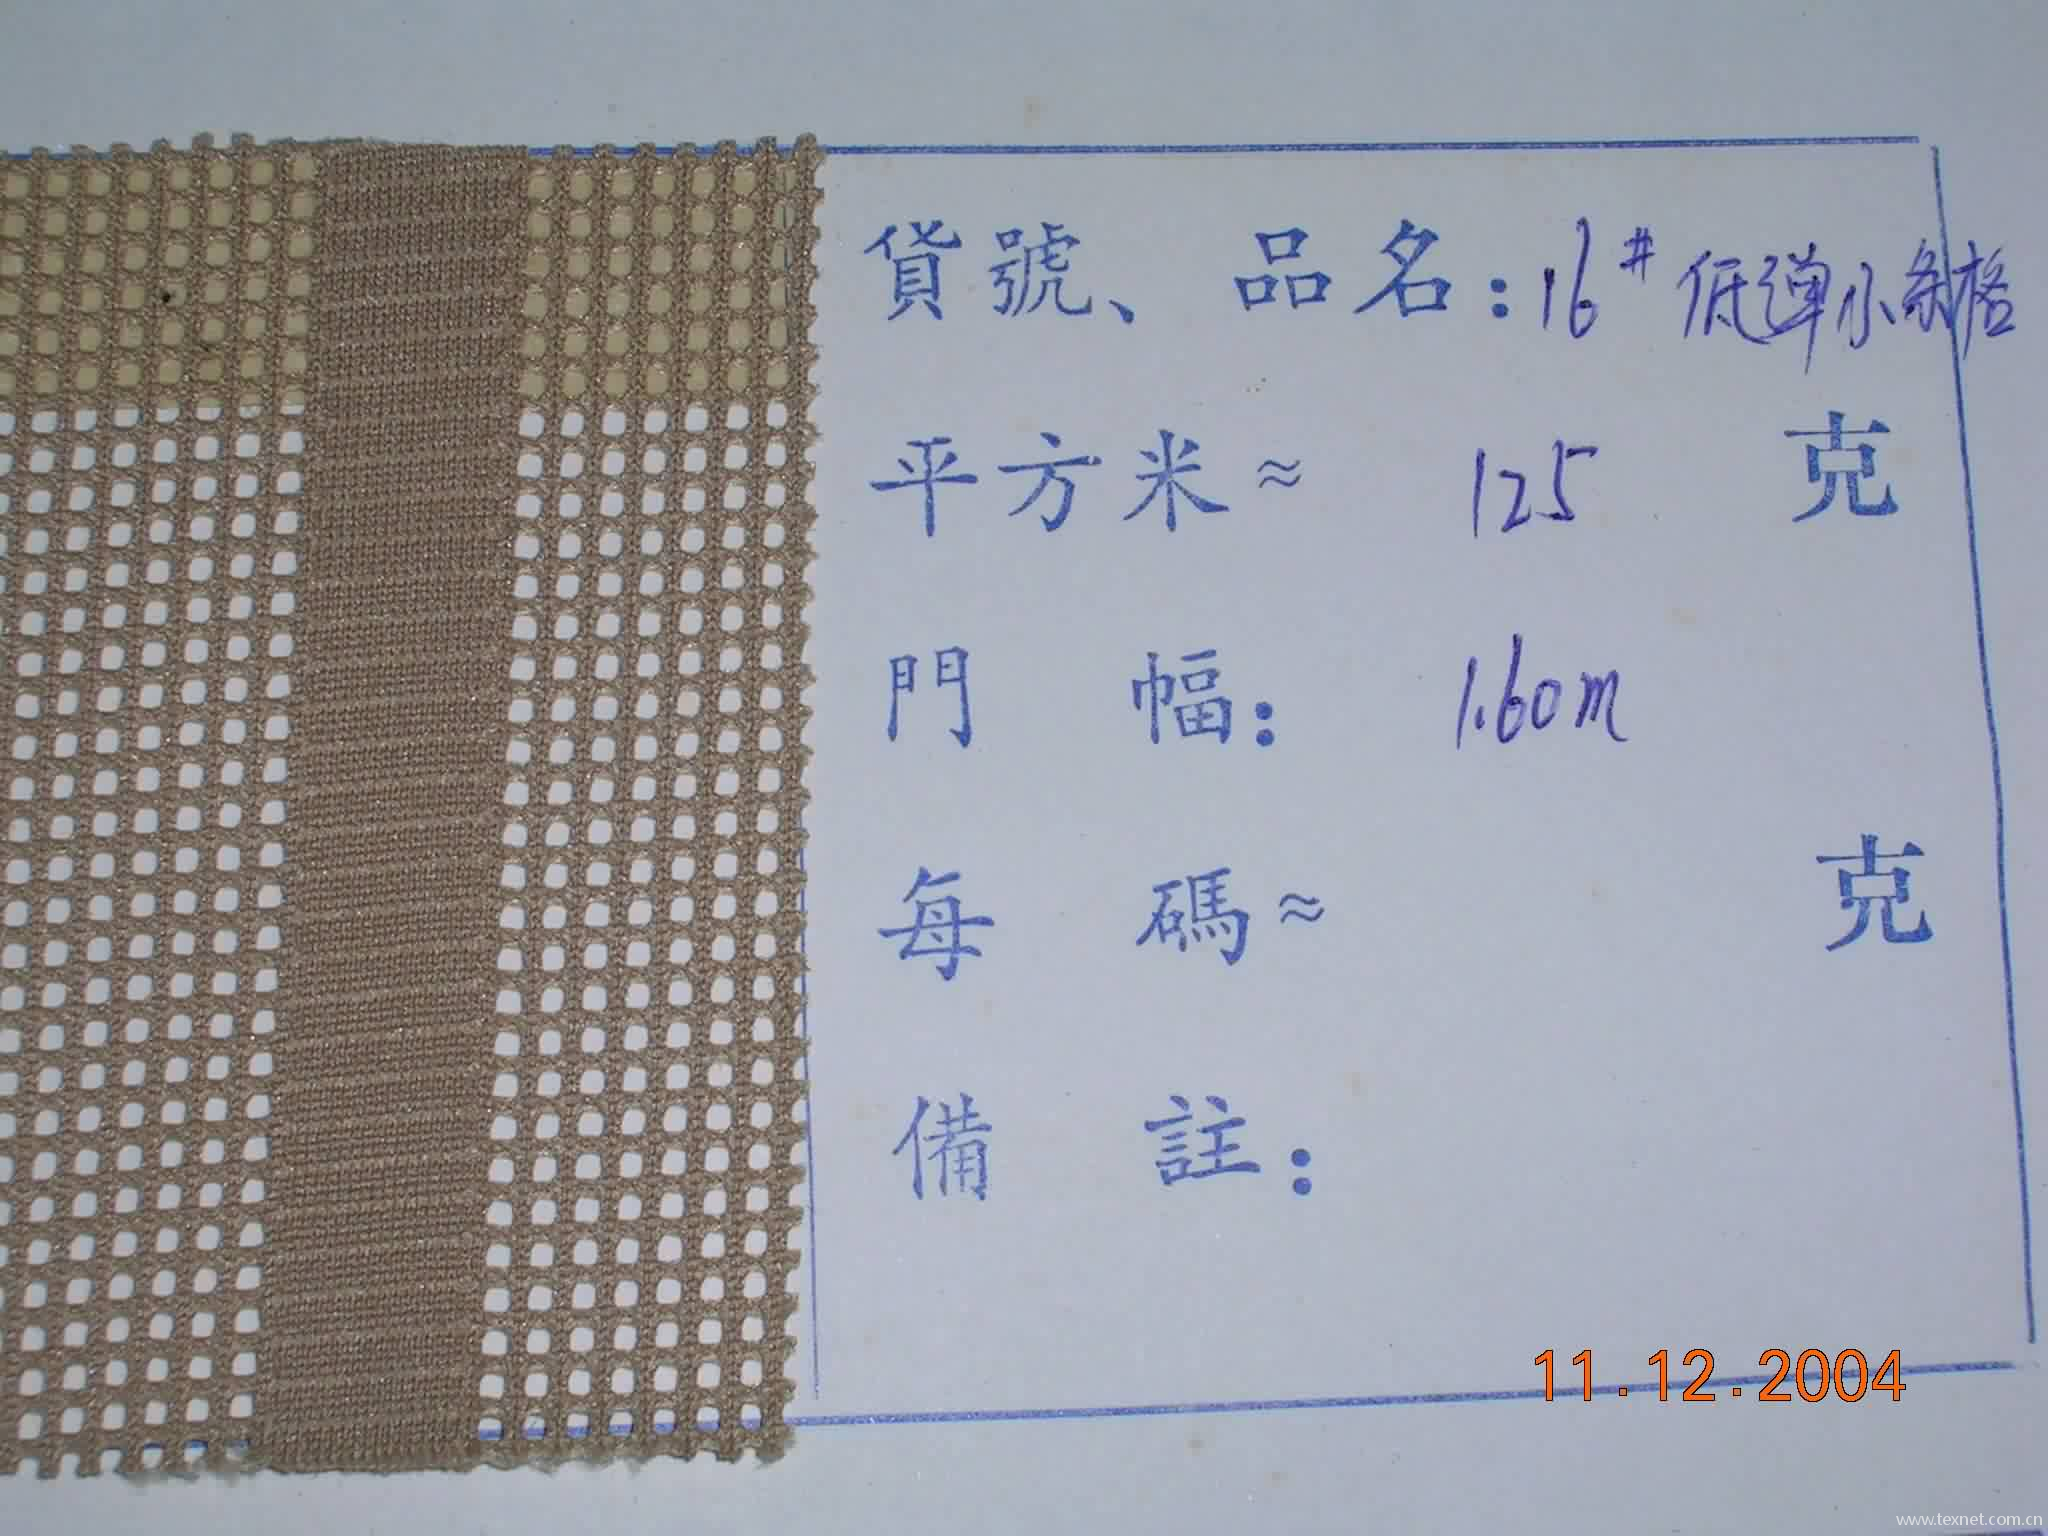 貨號、品名:16# 低弹小条格
平方米≈ 125 克
門幅: 1.60m
每碼≈ 克
備註:
11.12.2004
www.texnet.com.cn